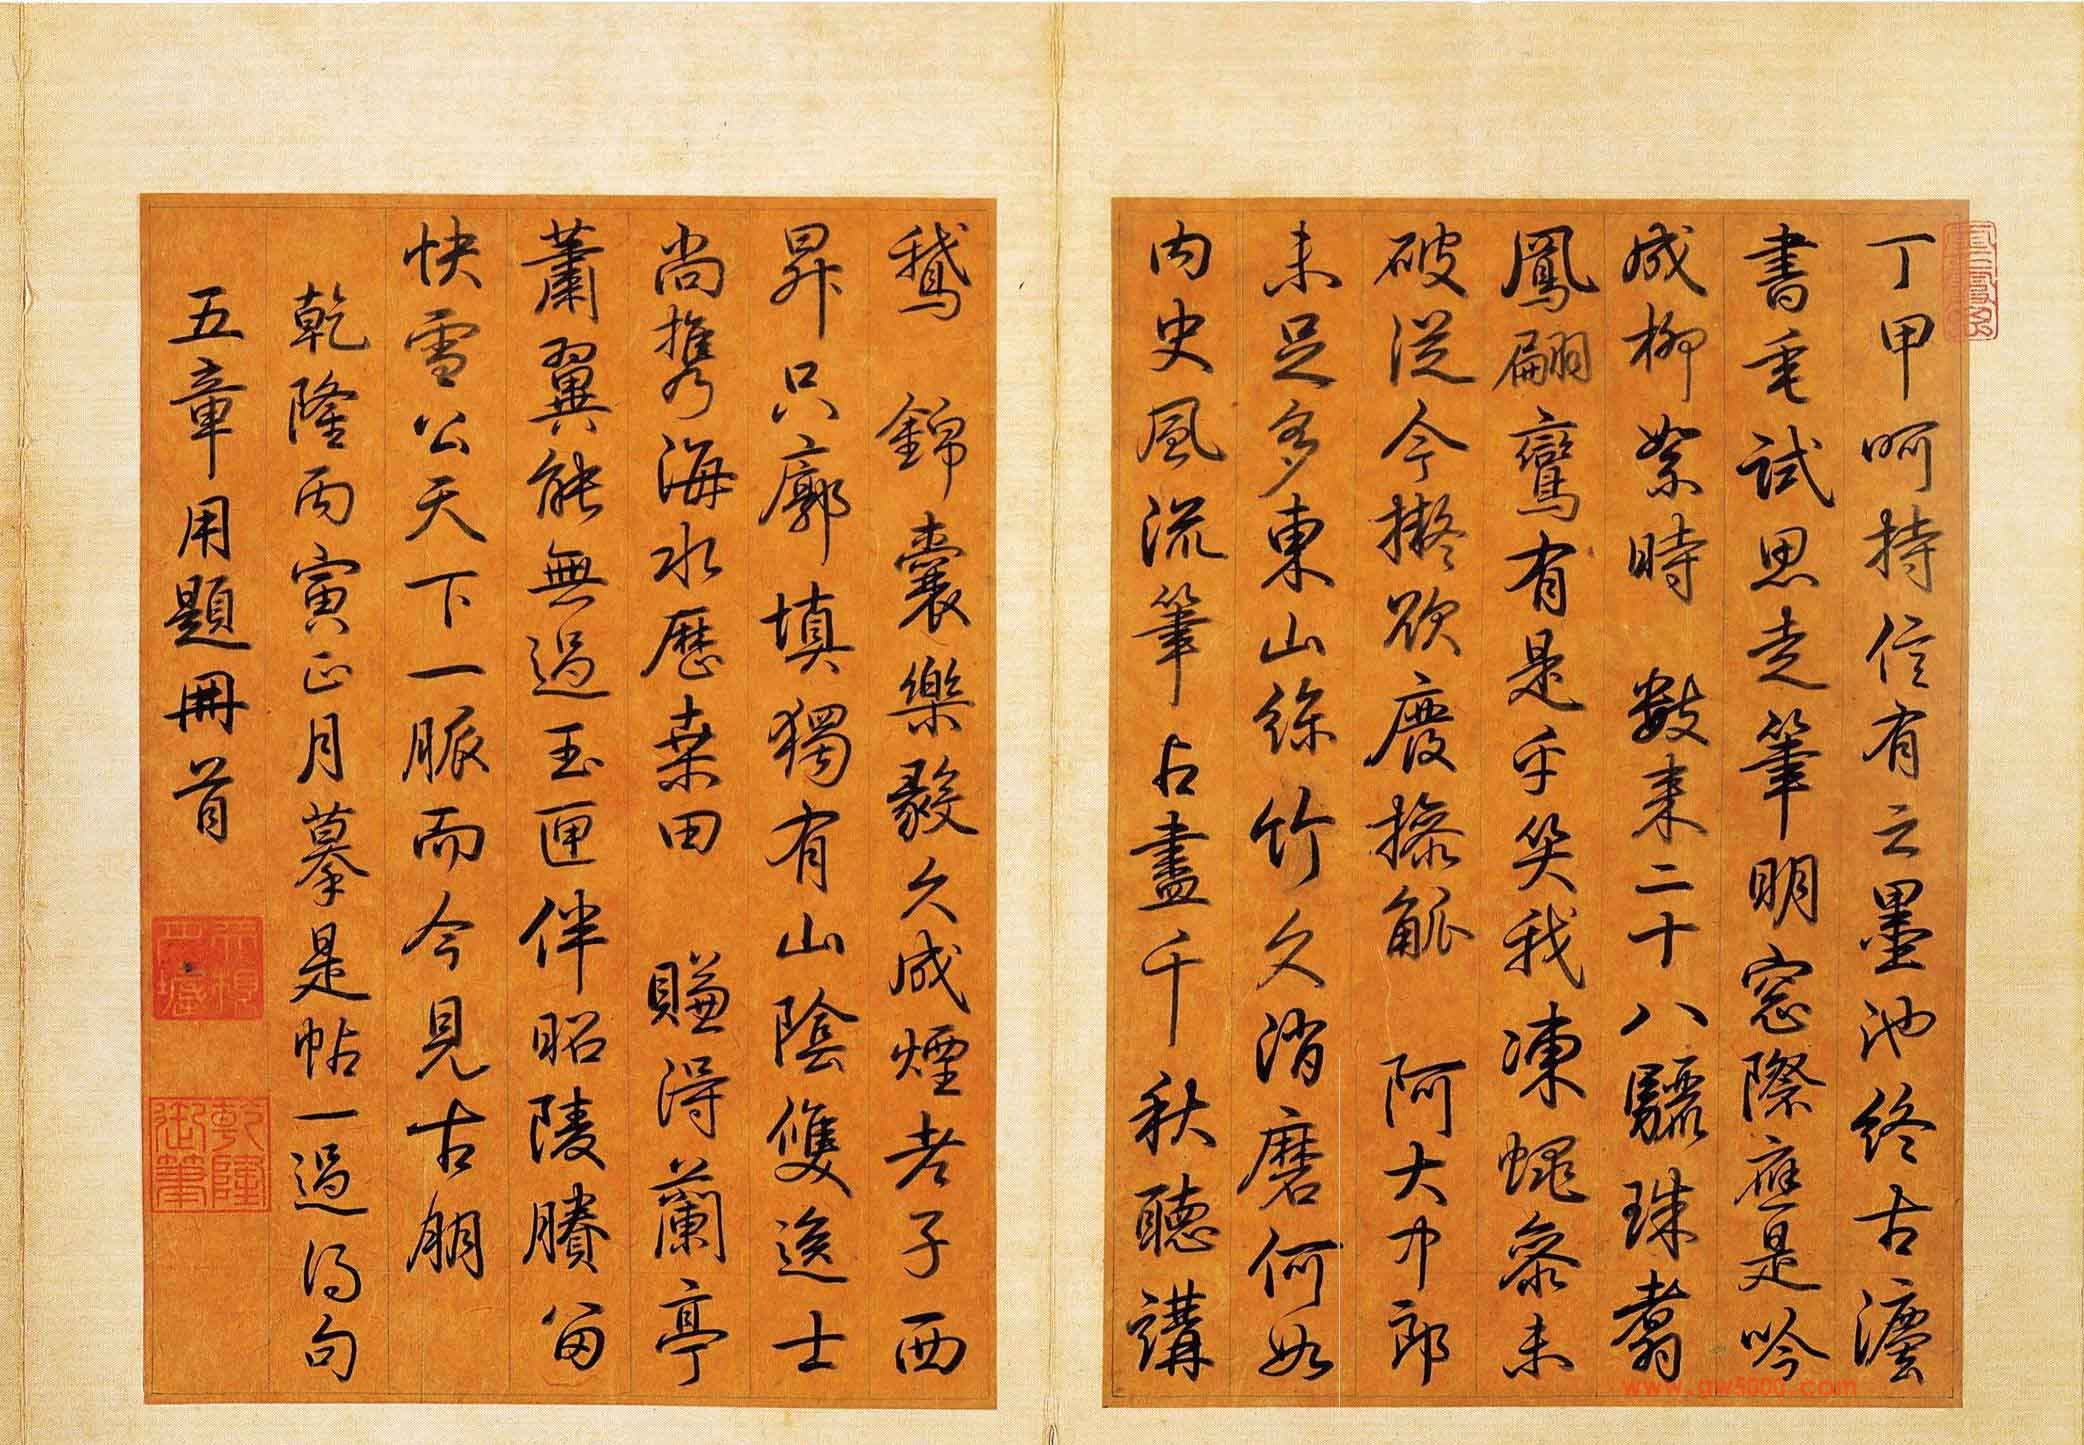 丁甲呵持信有之墨池終古灋
書垂試思走筆明窗際應是吟
成柳絮時 數來二十八驪珠翥
鳳翩鸞有是乎笑我凍蠅參未
破從今擬欲廢操觚 阿大中郎
未足多東山絲竹久消磨何如
内史風流筆占盡千秋聽講
鵝 錦囊樂毅久成煙老子西
昇只廓填獨有山陰雙逸士
尚攜海水歷桑田 賺得蘭亭
蕭翼能無過玉匣伴昭陵賸留
快雪公天下一脈而今見古朋
乾隆丙寅正月摹是帖一過得句
五章用題冊首
乾隆御筆